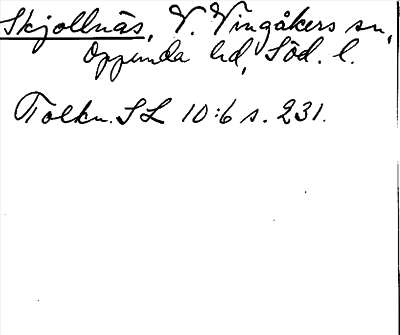 Skjollnäs, V. Vingåkers sn,
Oppunda hd, Söd. l.
Tolkn. SL 10:6 s. 231.